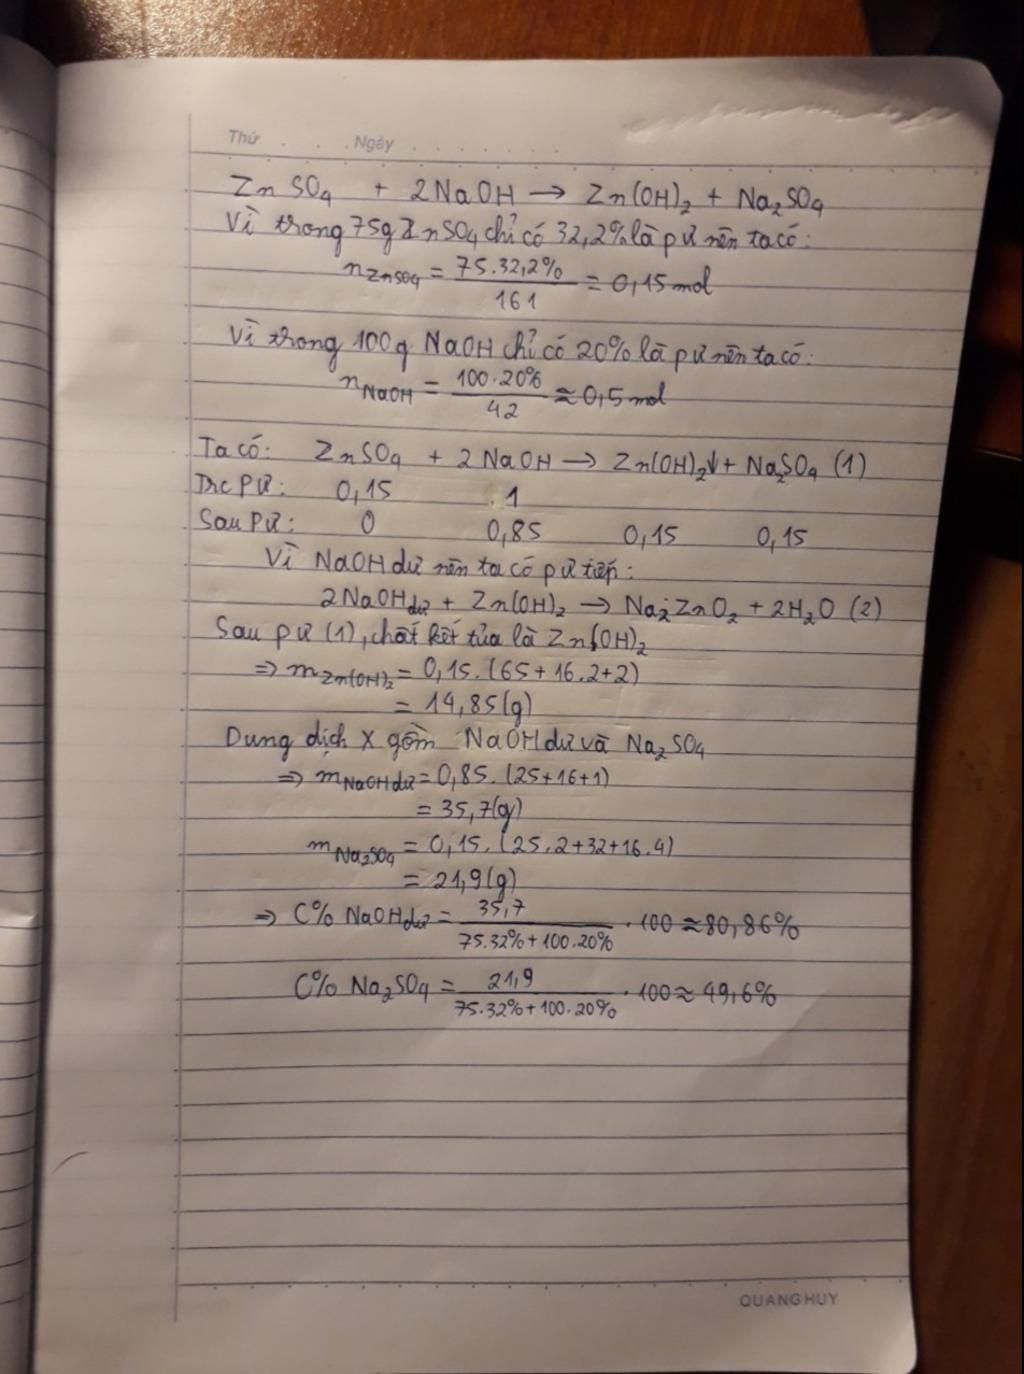 Thứ . . . . Ngày . . . . . . .
ZnSO₄ + 2NaOH → Zn(OH)₂ + Na₂SO₄
Vì trong 75g ZnSO₄ chỉ có 32,2% là pư nên ta có:
n ZnSO₄ = 75.32,2% / 161 = 0,15 mol
Vì trong 100g NaOH chỉ có 20% là pư nên ta có:
n NaOH = 100.20% / 42 ≈ 0,5 mol
Ta có: ZnSO₄ + 2NaOH → Zn(OH)₂↓ + Na₂SO₄ (1)
Trc pư: 0,15 1
Sau pư: 0 0,85 0,15 0,15
Vì NaOH dư nên ta có pư tiếp:
2NaOH dư + Zn(OH)₂ → Na₂ZnO₂ + 2H₂O (2)
Sau pư (1), chất kết tủa là Zn(OH)₂
⇒ m Zn(OH)₂ = 0,15.(65+16.2+2)
= 14,85(g)
Dung dịch X gồm NaOH dư và Na₂SO₄
⇒ m NaOH dư = 0,85.(25+16+1)
= 35,7(g)
m Na₂SO₄ = 0,15.(25.2+32+16.4)
= 21,9(g)
⇒ C% NaOH dư = 35,7 / 75.32%+100.20% . 100 ≈ 80,86%
C% Na₂SO₄ = 21,9 / 75.32%+100.20% . 100 ≈ 49,6%
QUANG HUY